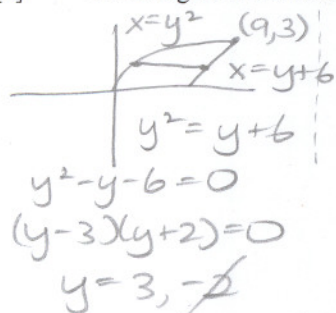 x=y² (9,3)
x=y+6
y²=y+6
y²-y-6=0
(y-3)(y+2)=0
y=3, -2